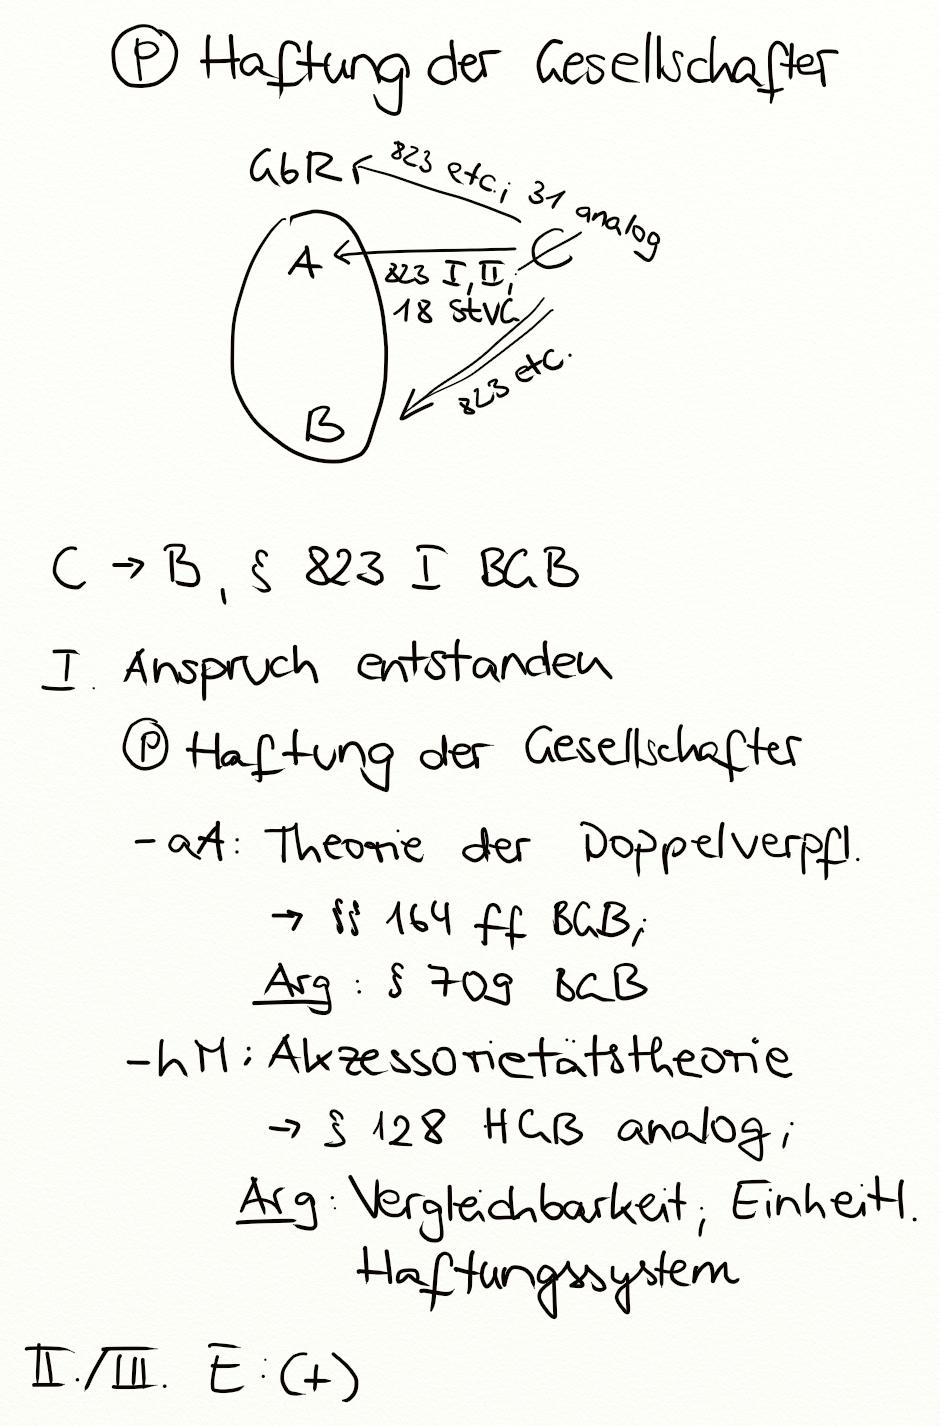 Ⓟ Haftung der Gesellschafter
GbR
823 etc.; 31 analog
A
C
823 I, II;
18 StVG
B
823 etc.
C → B, § 823 I BGB
I. Anspruch entstanden
Ⓟ Haftung der Gesellschafter
- aA: Theorie der Doppelverpfl.
→ §§ 164 ff BGB;
Arg: § 709 BGB
- hM: Akzessorietätstheorie
→ § 128 HGB analog;
Arg: Vergleichbarkeit; Einheitl.
Haftungssystem
II./III. E: (+)